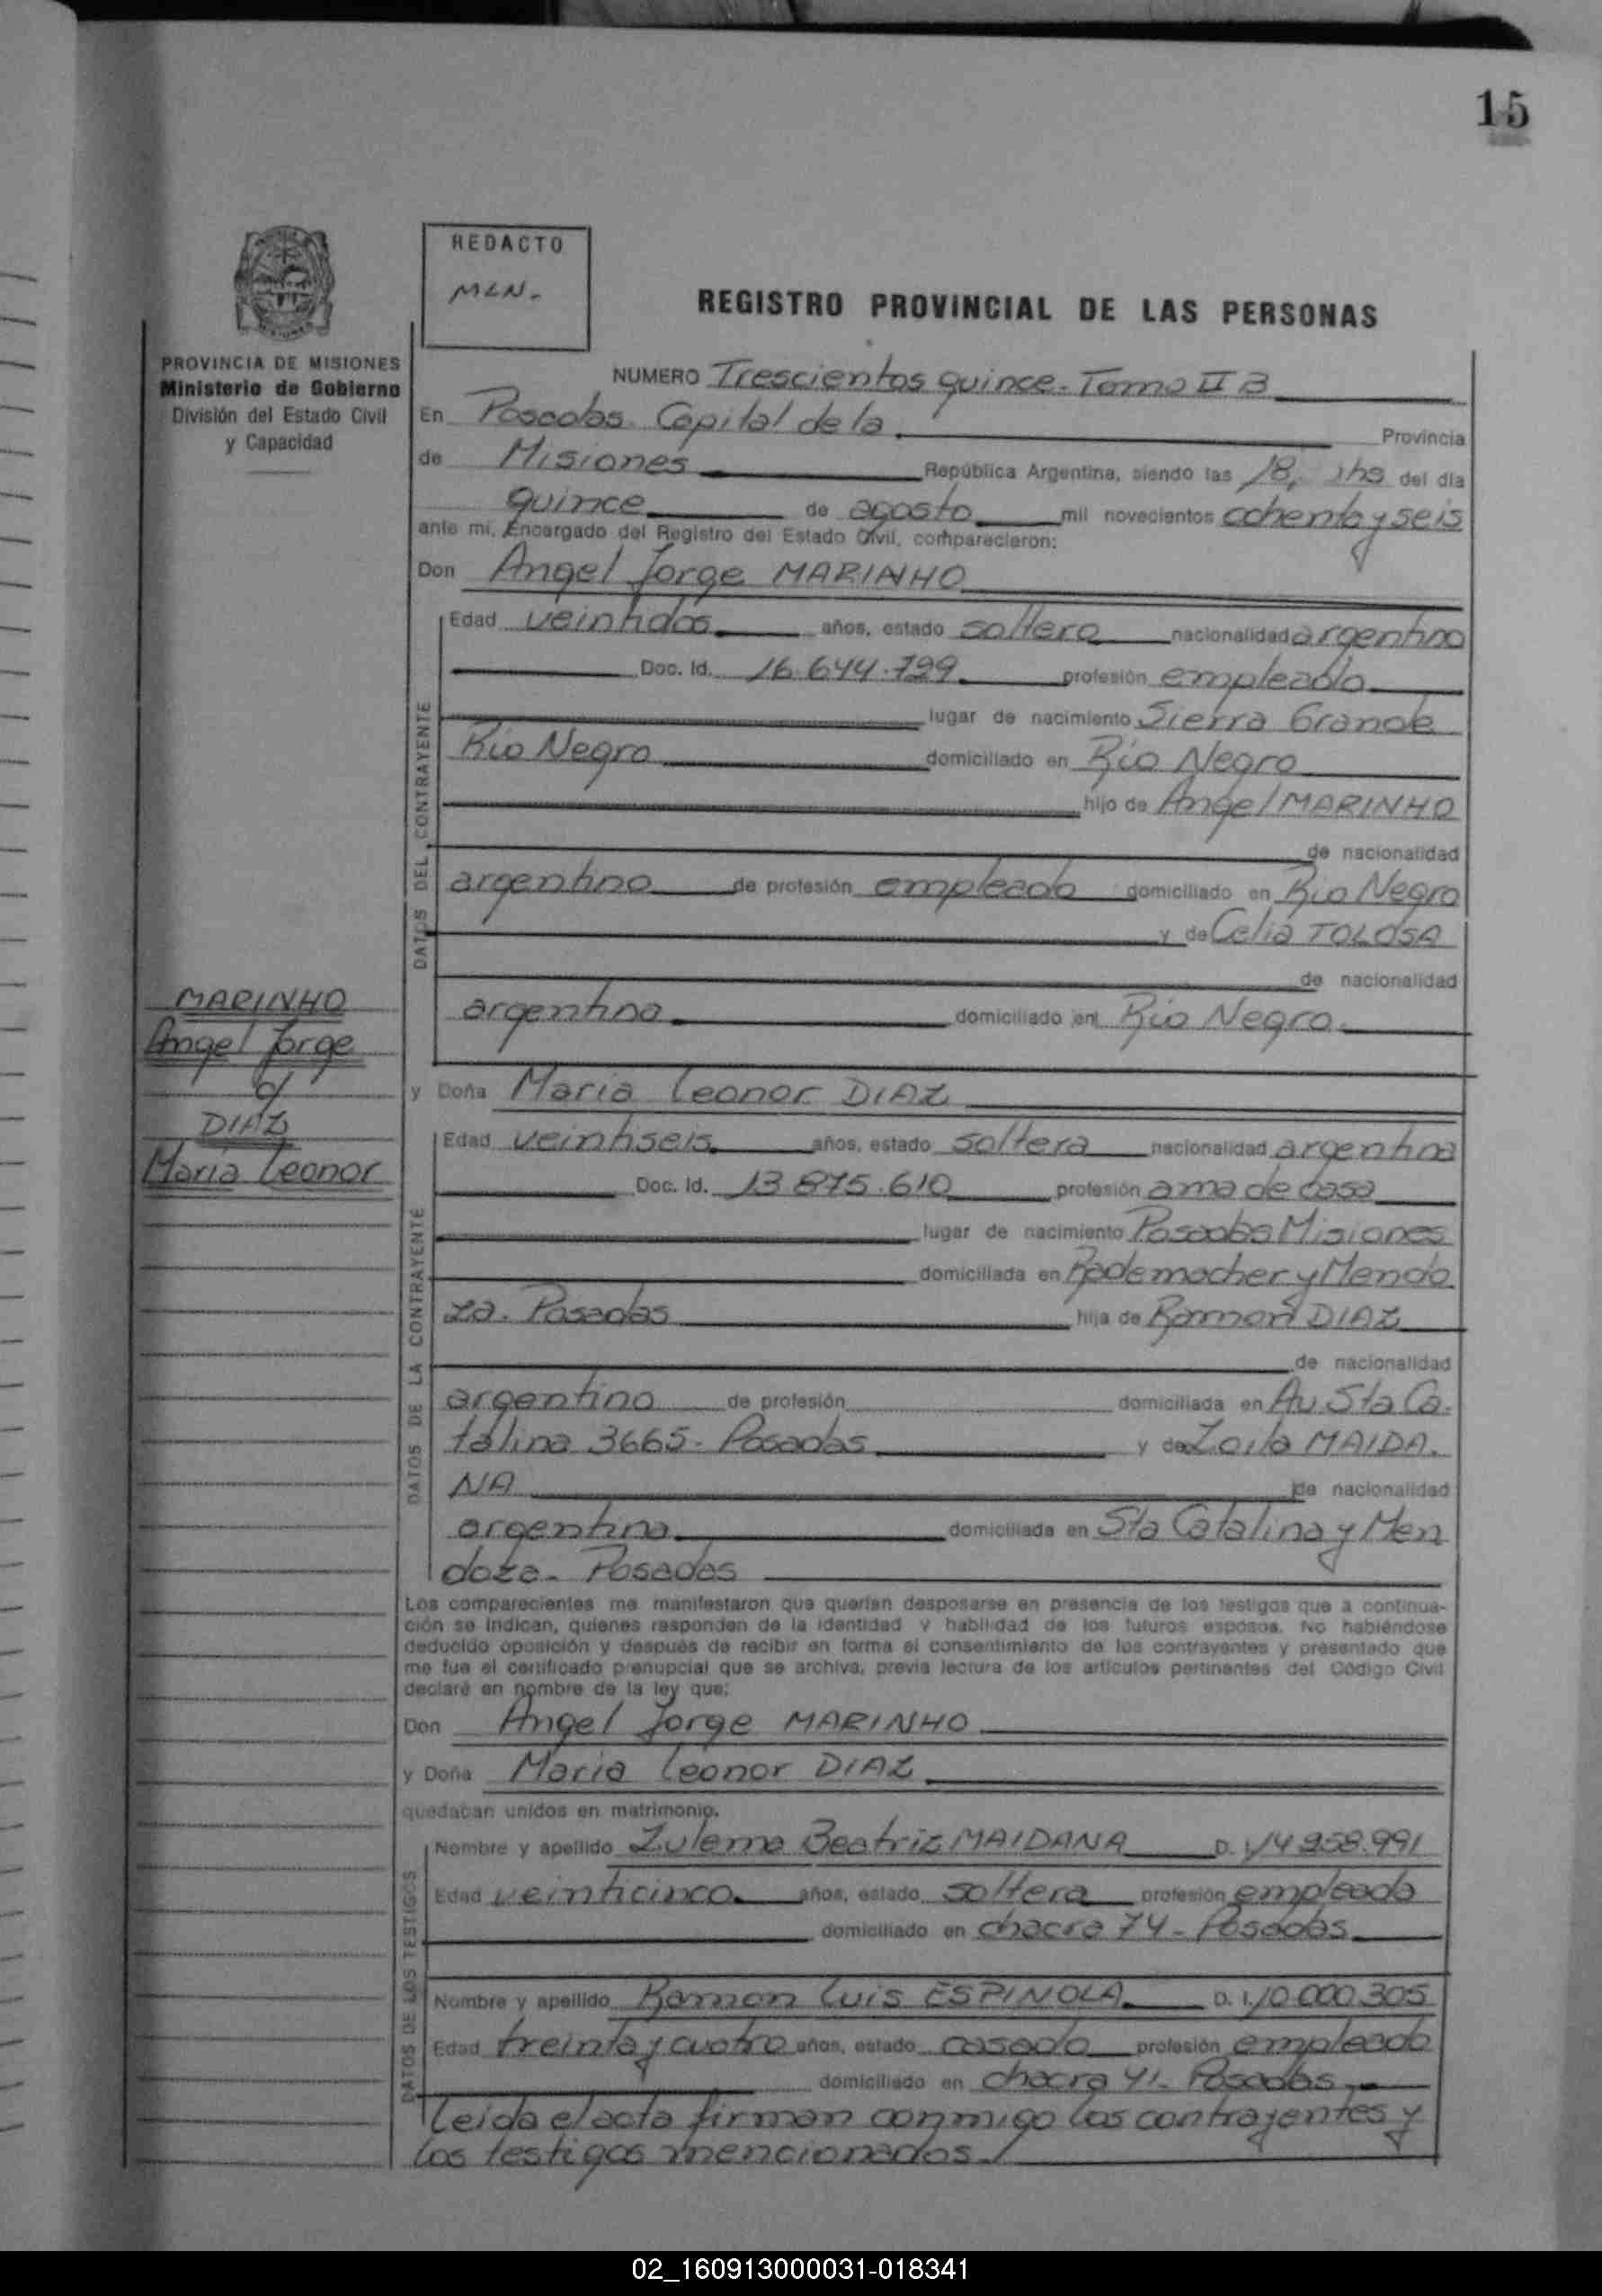 15
REDACTO
MLN.-
REGISTRO PROVINCIAL DE LAS PERSONAS
PROVINCIA DE MISIONES
Ministerio de Gobierno
División del Estado Civil
y Capacidad
NUMERO Trescientos quince- Tomo II B
En Posadas. Capital de la Provincia
de Misiones República Argentina, siendo las 18, hs del día
quince de agosto mil novecientos ochenta y seis
ante mí, Encargado del Registro del Estado Civil, comparecieron:
Don Angel Jorge MARINHO
DATOS DEL CONTRAYENTE
Edad veintidos años, estado soltero nacionalidad argentino
Doc. Id. 16.644.799 profesión empleado
lugar de nacimiento Sierra Grande
Rio Negro domiciliado en Rio Negro
hijo de Angel MARINHO
de nacionalidad
argentino de profesión empleado domiciliado en Rio Negro
y de Celia TOLOSA
de nacionalidad
argentina domiciliado en Rio Negro.
MARINHO
Angel Jorge
c/
DIAZ
Maria Leonor
y Doña Maria Leonor DIAZ
DATOS DE LA CONTRAYENTE
Edad veintiseis años, estado soltera nacionalidad argentina
Doc. Id. 13.875.610 profesión ama de casa
lugar de nacimiento Posadas Misiones
domiciliada en Rademacher y Mendo
za. Posadas hija de Ramon DIAZ
de nacionalidad
argentino de profesión domiciliada en Av Sta Ca.
talina 3665- Posadas y de Zoila MAIDA.
NA de nacionalidad
argentina domiciliada en Sta Catalina y Men
doza- Posadas
Los comparecientes me manifestaron que querían desposarse en presencia de los testigos que a continua-
ción se indican, quienes responden de la identidad y habilidad de los futuros esposos. No habiéndose
deducido oposición y después de recibir en forma el consentimiento de los contrayentes y presentado que
me fue el certificado prenupcial que se archiva, previa lectura de los artículos pertinentes del Código Civil
declaré en nombre de la ley que:
Don Angel Jorge MARINHO
y Doña Maria Leonor DIAZ
quedaban unidos en matrimonio.
DATOS DE LOS TESTIGOS
Nombre y apellido Zulema Beatriz MAIDANA D. I. 14.958.991
Edad veinticinco años, estado soltera profesión empleada
domiciliado en chacra 74- Posadas
Nombre y apellido Ramon Luis ESPINOLA D. I. 10.000.305
Edad treinta y cuatro años, estado casado profesión empleado
domiciliado en chacra 41- Posadas
Leida el acta firman conmigo los contrayentes y
los testigos mencionados./
02_160913000031-018341